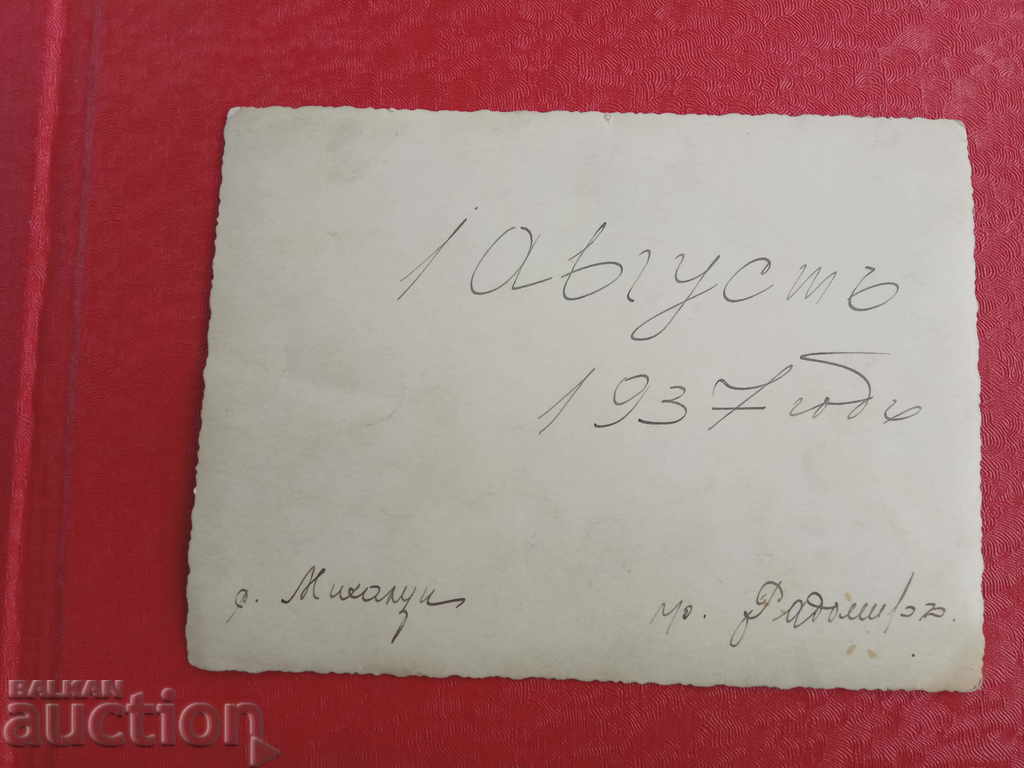 1 Августъ
1937 годъ
с. Михалци гр. Радомиръ.
BALKAN
auction